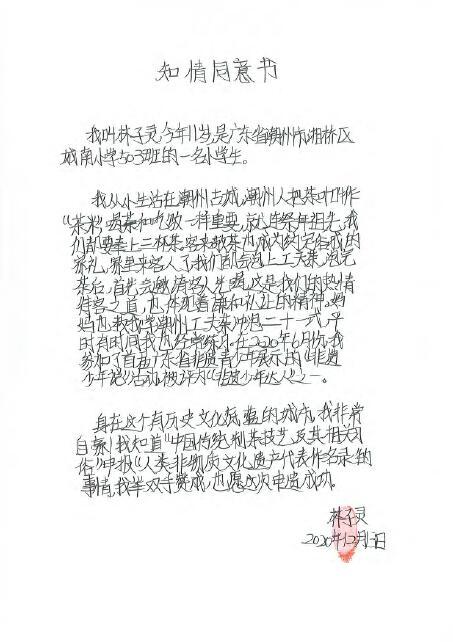 知情同意书
我叫林子灵,今年11岁,是广东省潮州市湘桥区
城南小学503班的一名小学生。
我从小生活在潮州古城,潮州人把茶叶叫作
“茶米”,喝茶和吃饭一样重要,就连祭拜祖先,我
们都要奉上三杯茶,客来敬茶也成为约定俗成的
茶礼,家里来客人了,我们都会泡上工夫茶,泡完
茶后,首先会邀请客人先喝,这是我们的热情
待客之道,也体现着谦和礼让的精神。妈
妈也教我学潮州工夫茶冲泡二十一式,平
时有时间我也经常练习。在2020年6月份,我
参加了首届广东省非遗青少年展示的“非遗
少年说”活动,被评为“非遗少年达人”之一。
身在这个有历史文化底蕴的城市,我非常
自豪!我知道“中国传统制茶技艺及其相关习
俗”申报“人类非物质文化遗产代表作名录”的
事情,我举双手赞成,也愿这次申遗成功。
林子灵
2020年12月 日